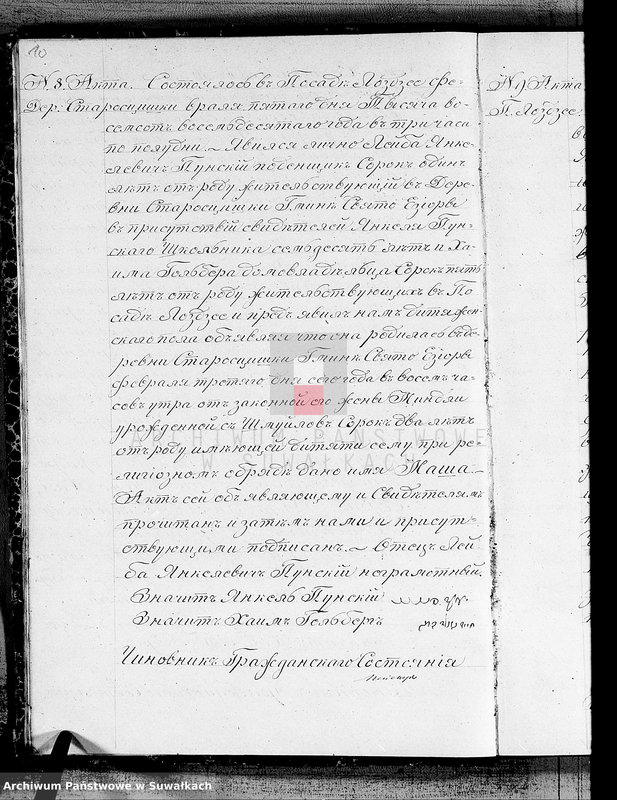 40
N. 8. Акта. Состоялось въ Посадѣ Лоздзее фе-
Дер. Старосцишки враля пятаго дня Тысяча во-
семсотъ восемьдесятаго года въ три часа
по полудни. Явился лично Лейба Янке-
левичъ Пунскій поденщикъ Сорокъ одинъ
лѣтъ отъ роду жительствующій въ Дерев-
вни Старосцишки Гминѣ Свято Езіоры
въ присутствій свидѣтелей Янкеля Пун-
скаго Школьника семьдесятъ лѣтъ и Ха-
има Гольбера домовладѣльца Сорокъ пять
лѣтъ отъ роду жительствующихъ въ По
садѣ Лоздзее и предъявилъ намъ дитя жен-
скаго пола объявляя что она родилась въ де-
ревни Старосцишки Гминѣ Свято Езіоры
февраля третяго дня сего года въ восемь ча-
совъ утра отъ законной его жены Миндли
урожденной съ Шмуйловъ Сорокъ два лѣтъ
отъ роду имѣющей дитяти сему при ре-
лигіозномъ обрядѣ дано имя Таша
Актъ сей объявляющему и Свидѣтелямъ
прочитанъ и затѣмъ нами и присут-
ствующими подписанъ. Отецъ Лей-
ба Янкелевичъ Пунскій неграмотный.
Значитъ Янкель Пунскій
Значитъ Хаимъ Гольбергъ
Чиновникъ Гражданскаго Состоянія
N 9 Акта
П. Лоздзее.
ARCHIWUM PAŃSTWOWE
W SUWAŁKACH
Archiwum Państwowe w Suwałkach